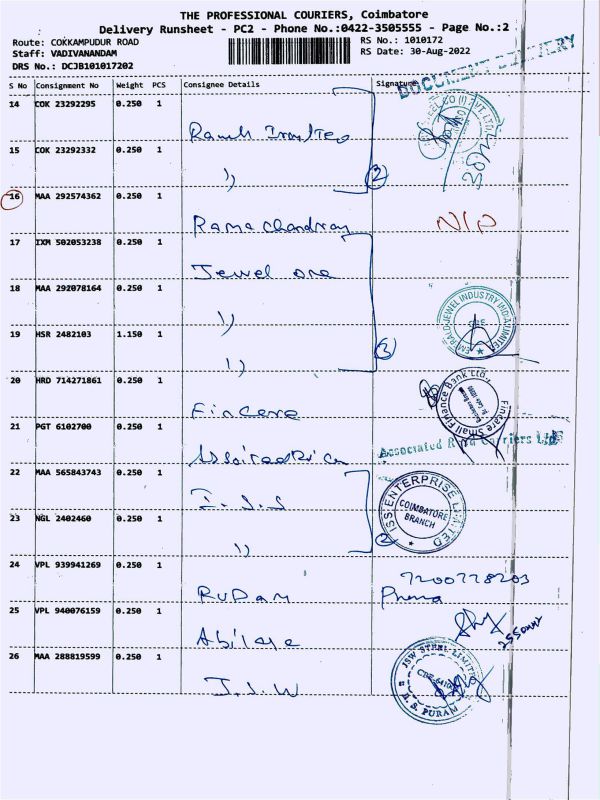 THE PROFESSIONAL COURIERS, Coimbatore
Delivery Runsheet - PC2 - Phone No.:0422-3505555 - Page No.:2
Route: COKKAMPUDUR ROAD
RS No.: 1010172
Staff: VADIVANANDAM
RS Date: 30-Aug-2022
DRS No.: DCJB101017202
DOCUMENT DELIVERY
S No Consignment No Weight PCS Consignee Details Signature
14 COK 23292295 0.250 1
15 COK 23292332 0.250 1
2
16 MAA 292574362 0.250 1
Ramachandran
17 IXM 502053238 0.250 1
Jewel one
18 MAA 292078164 0.250 1
EMERALD JEWEL INDUSTRY INDIA LIMITED
19 HSR 2482103 1.150 1
3
20 HRD 714271861 0.250 1
Fincare
Fincare Small Finance Bank Ltd.,
21 PGT 6102700 0.250 1
Associated Road Carriers Ltd
22 MAA 565843743 0.250 1
I.S.S
ISS ENTERPRISE LIMITED
COIMBATORE
BRANCH
23 NGL 2402460 0.250 1
2
24 VPL 939941269 0.250 1
7200778203
25 VPL 940076159 0.250 1
26 MAA 288819599 0.250 1
JSW STEEL LIMITED
R.S. PURAM
J.S.W